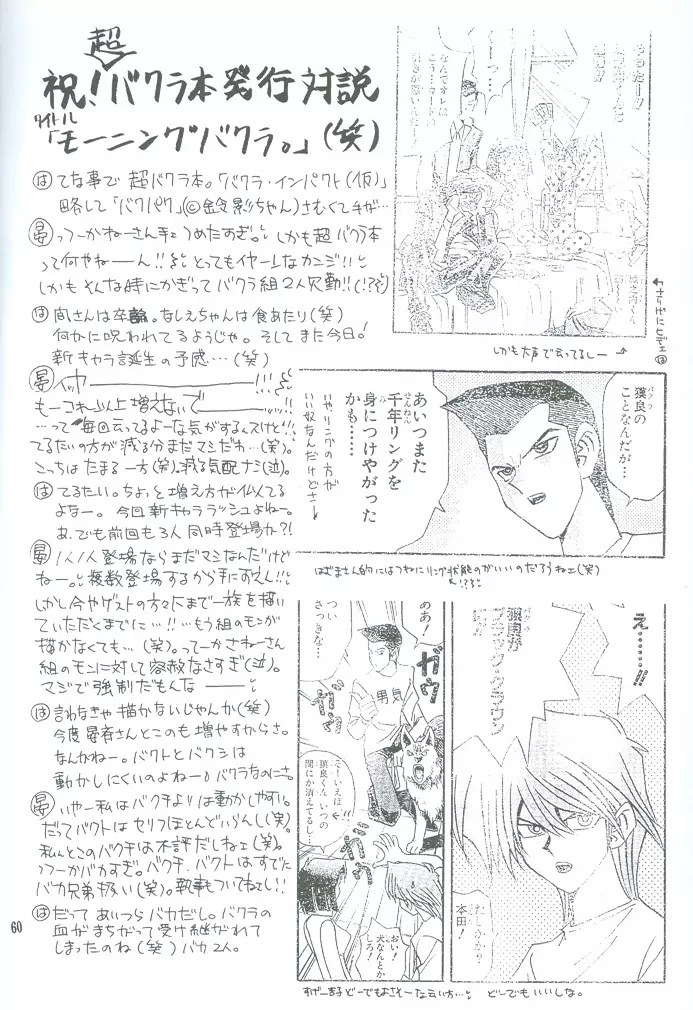 超
祝!バクラ本発行対説
タイトル
「モーニングバクラ。」(笑)
は てな事で 超バクラ本。「バクラ・インパクト(仮)」
略して「バクパク」(©鈴影ちゃん)さむくて手が…
晏 っつーかねーさん手ェつめたすぎ。しかも超バクラ本
って何やねーん!!とってもイヤーンなカンジ!!
しかもそんな時にかぎってバクラ組2人欠勤!!(!??)
は 尚さんは卒論。なしえちゃんは食あたり(笑)
何かに呪われてるようじゃ。そしてまた今日!
新キャラ誕生の予感…(笑)
晏 イッカー!!!
もーコレ以上増えないでー!!
…って毎回云ってるよーな気がするんですけど!!
てるたいの方が減る分まだマシだわ…(笑)。
こっちはたまる一方(笑)。減る気配ナシ(泣)。
は てるたい。ちょっと増え方が似てる
よなー。今回新キャララッシュよねー。
あ、でも前回も3人同時登場か?!
晏 1人1人登場ならまだマシなんだけど
ねー。複数登場するから手におえん!!
しかし今やゲストの方々にまで一族を描い
ていただくまでに…!!…もう組のモンが
描かなくても…(笑)。ってーかさねーさん
組のモンに対して容赦なさすぎ(泣)。
マジで強制だもんなー
は 言わなきゃ描かないじゃんか(笑)
今度晏斉さんとこのも増やすからさ。
なんかねー。バクトとバクシは
動かしにくいのよねー。バクラなのにさ。
晏 いやー私はバクチよりは動かしやすい。
だってバクトはセリフほとんどいらんし(笑)。
私んとこのバクチは不評だしねェ(笑)。
っつーかバカすぎ。バクチ、バクトはすでに
バカ兄弟扱い(笑)。執事もついてねェし!!
は だって あいつら バカだし。バクラの
血がまちがって受け継がれて
しまったのね(笑)バカ2人。
60
やったー!!
なんでオレは
しかも大声で云ってるしー
獏良の
バクラ
ことなんだが…
あいつまた
千年リングを
せんねん
身につけやがった
かも……
いやリングの方が
いい奴なんだけどさー
はざまさん的にはつねにリング状態のがいいのだろうねェ(笑)
え…!!
獏良が
ブラック・クラウン
たしかか?
本田!
ああ!
つい
さっきな…
ガウ
ガウ
男気
そーいえば
獏良くんいつの
間にか消えてるし…
!!
おい!
犬なんとか
しろ!
すげーまるどーでもよさそーな云い方…
どーでもいいしな。